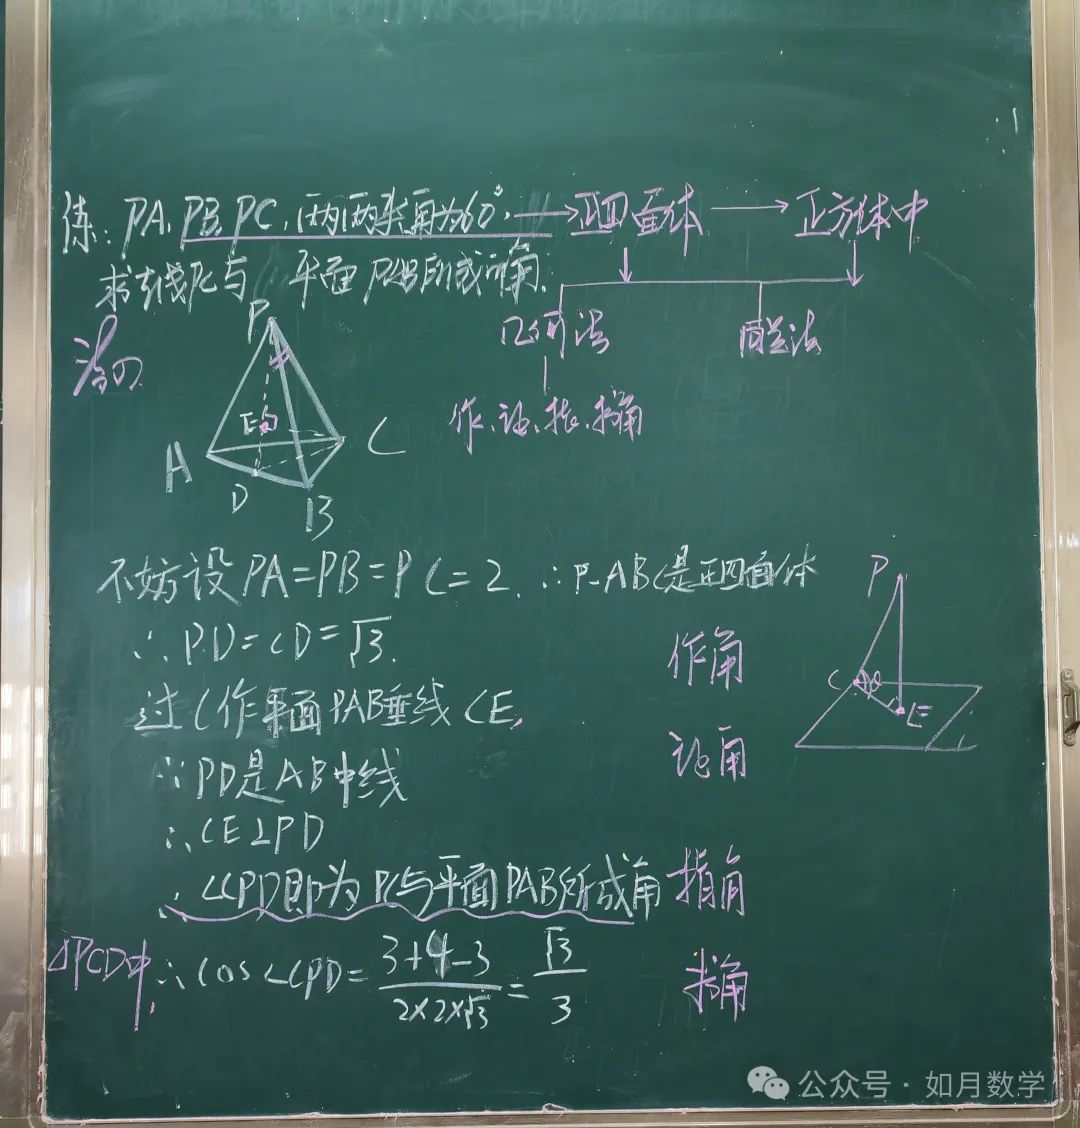 练: PA、PB、PC,两两夹角为60°, → 正四面体 → 正方体中
求直线PC与 平面PAB所成的角.
几何法 向量法
作、证、指、求角
P
E
A C
D
B
不妨设PA=PB=PC=2. ∴P-ABC是正四面体
∴PD=CD=√3.
作角
过C作平面PAB垂线CE,
P
C θ E
∵PD是AB中线
证角
∴CE⊥PD
∴∠CPD即为PC与平面PAB所成角 指角
△PCD中, ∴cos∠CPD=(3+4-3)/(2×2×√3)=√3/3 求角
公众号·如月数学